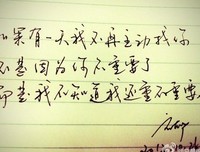 如果有一天我不再主动找你
不是因为你不重要了
而是我不知道我还重不重要